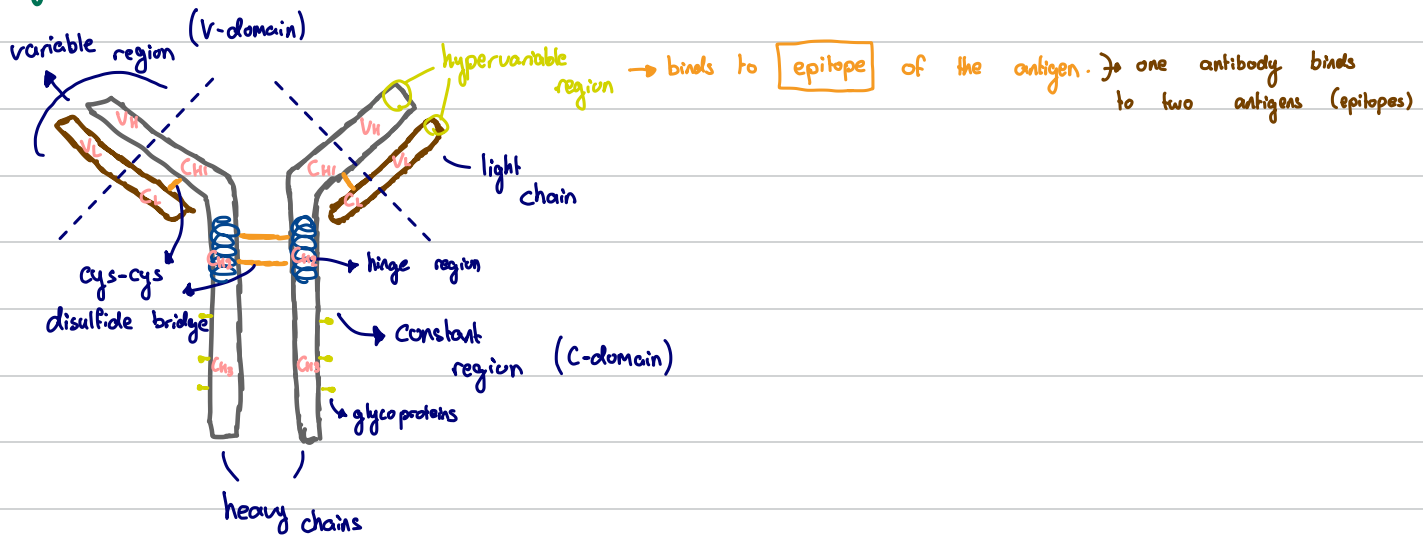 (V-domain)
variable region
hypervariable
region
→ binds to epitope of the antigen. } → one antibody binds
to two antigens (epitopes)
VH
VH
VL
VL
CH1
CH1
CL
CL
light
chain
CH2
CH2
hinge region
cys-cys
disulfide bridge
constant
region (C-domain)
CH3
CH3
glycoproteins
heavy chains